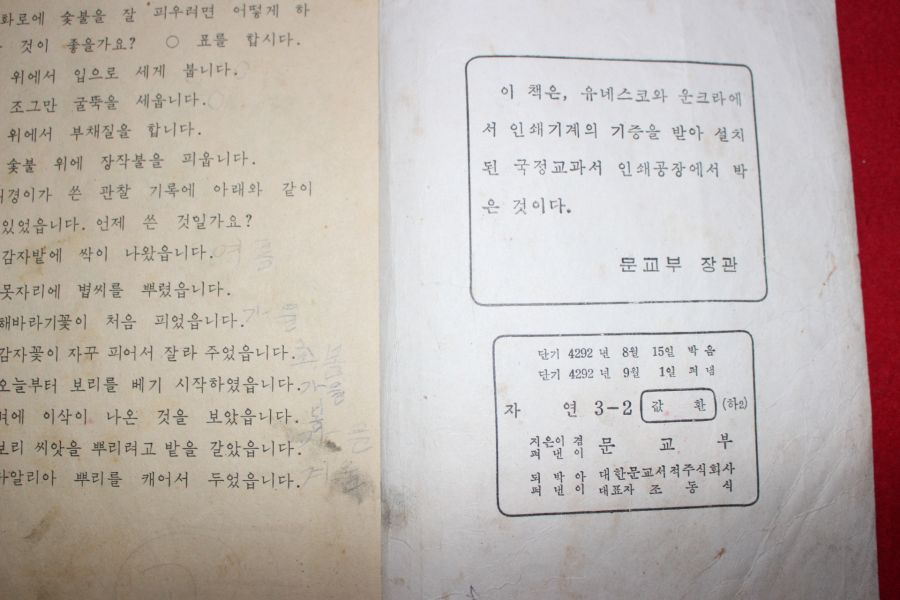 화로에 숯불을 잘 피우려면 어떻게 하
것이 좋을가요? ○ 표를 합시다.
위에서 입으로 세게 붑니다.
조그만 굴뚝을 세웁니다.
위에서 부채질을 합니다.
숯불 위에 장작불을 피웁니다.
경이가 쓴 관찰 기록에 아래와 같이
있었읍니다. 언제 쓴 것일가요?
감자밭에 싹이 나왔읍니다. 여름
못자리에 볍씨를 뿌렸읍니다.
해바라기꽃이 처음 피었읍니다. 가을
감자꽃이 자꾸 피어서 잘라 주었읍니다. 초봄
오늘부터 보리를 베기 시작하였읍니다. 가을
벼에 이삭이 나온 것을 보았읍니다. 봄
보리 씨앗을 뿌리려고 밭을 갈았읍니다.
다알리아 뿌리를 캐어서 두었읍니다. 겨울
이 책은, 유네스코와 운크라에
서 인쇄기계의 기증을 받아 설치
된 국정교과서 인쇄공장에서 박
은 것이다.
문교부 장관
단기 4292 년 8월 15일 박음
단기 4292 년 9월 1일 펴냄
자 연 3-2 값 환 (하2)
지은이 겸
펴 낸 이 문 교 부
되 박 아 대한문교서적주식회사
펴 낸 이 대표자 조 동 식